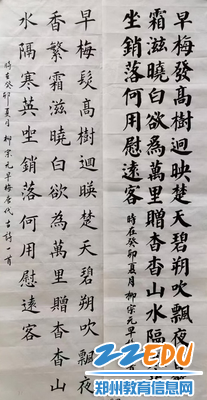 早梅發高樹迥映楚天碧朔吹飄夜
霜滋曉白欲為萬里贈杳杳山水隔
坐銷落何用慰遠客
時在癸卯夏月柳宗元早梅
早梅髮高樹迥暎楚天碧朔吹飄夜
香繁霜滋曉白欲為萬里贈杳杳山
水隔寒英坐銷落何用慰遠客
時在癸卯夏月柳宗元早梅唐代古詩一首
22EDU
郑州教育信息网